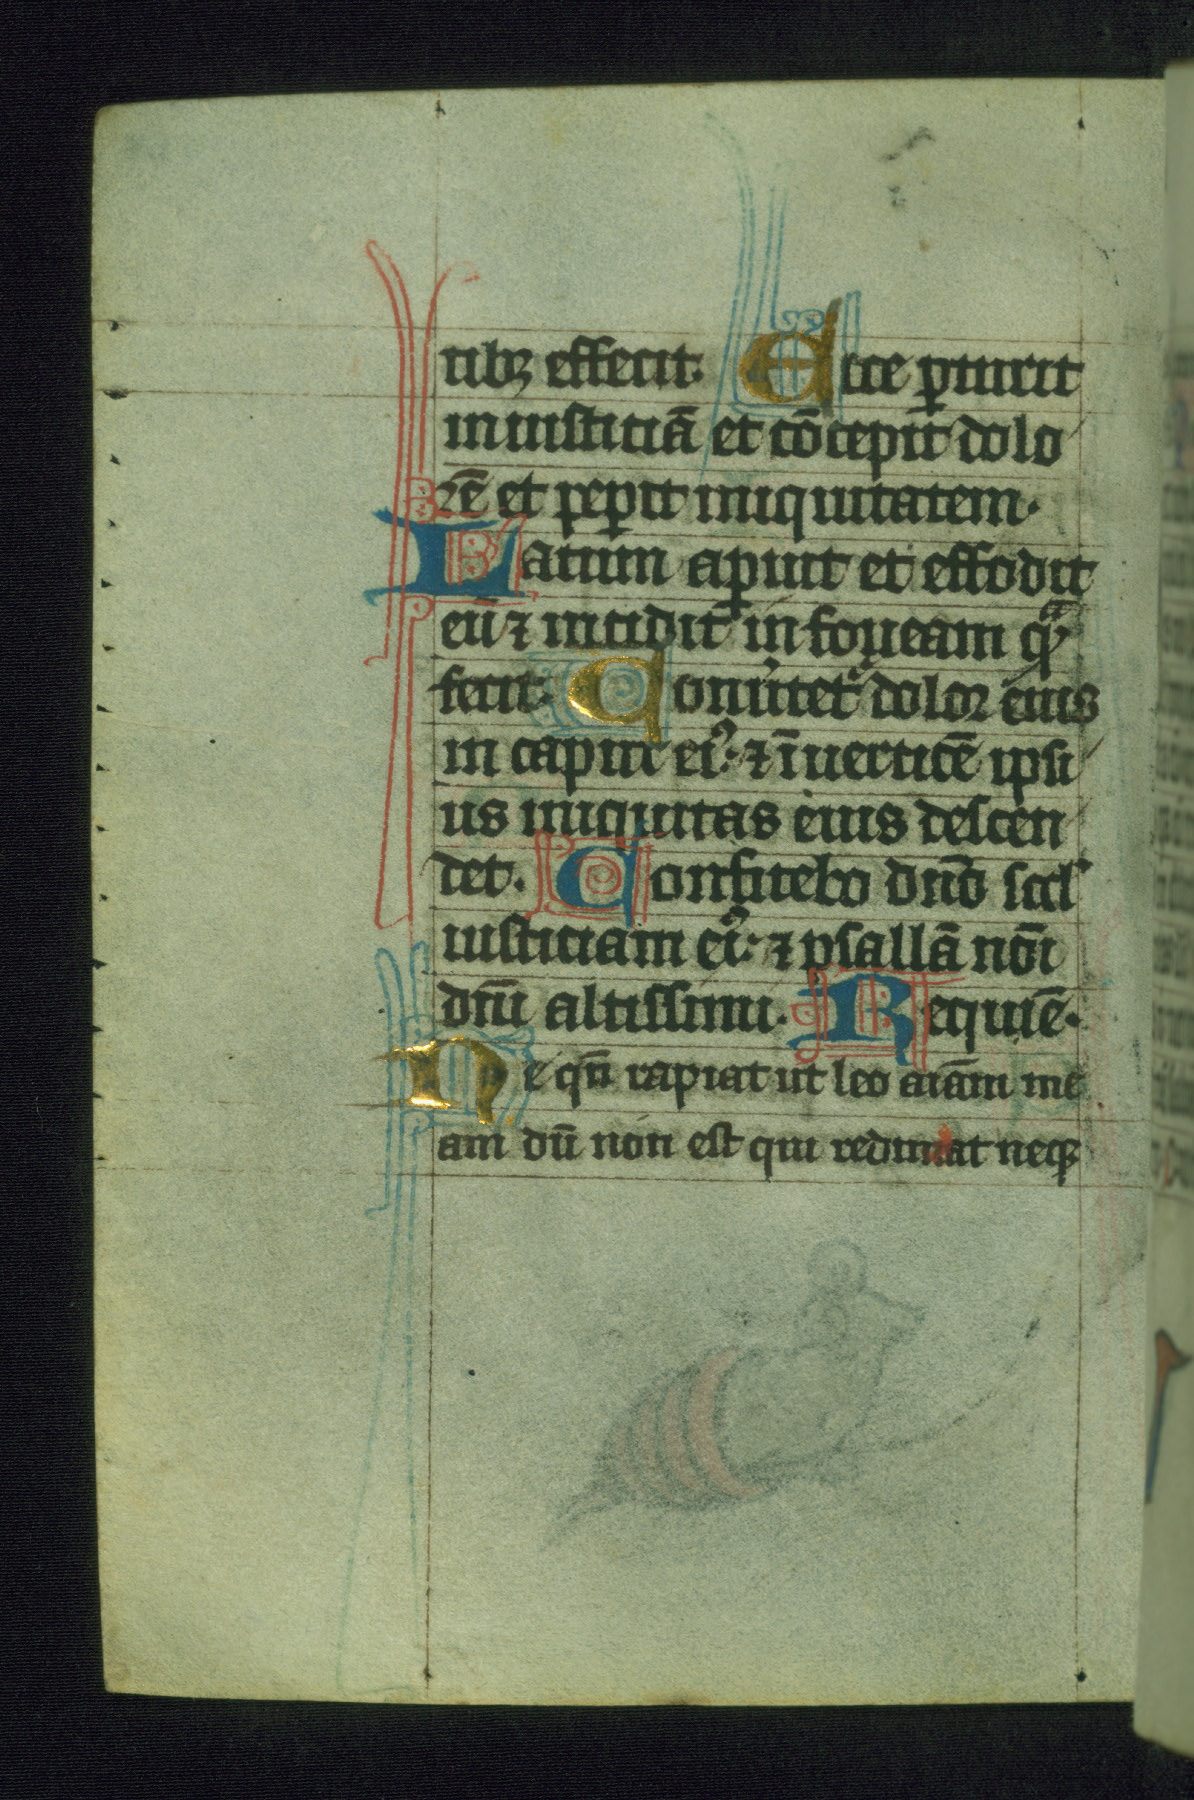 tibꝫ effecit. Ecce ꝑturit
iniusticiā et cōcepit dolo
rē et peꝑit iniquitatem.
Lacum aꝑuit et effodit
eū ⁊ incidit in foueam qᵃ̄
fecit. Conu͛tet͛ dolor eius
in caput ei⁹. ⁊ ī uerticē ipsi
us iniquitas eius descen
det. Confitebor dn̄o scd͛
iusticiam ei⁹. ⁊ psallā nōi
dn̄i altissimi. Requiē.
Ne qn̄ rapiat ut leo aīam me
am dū non est qui redimat neqꝫ